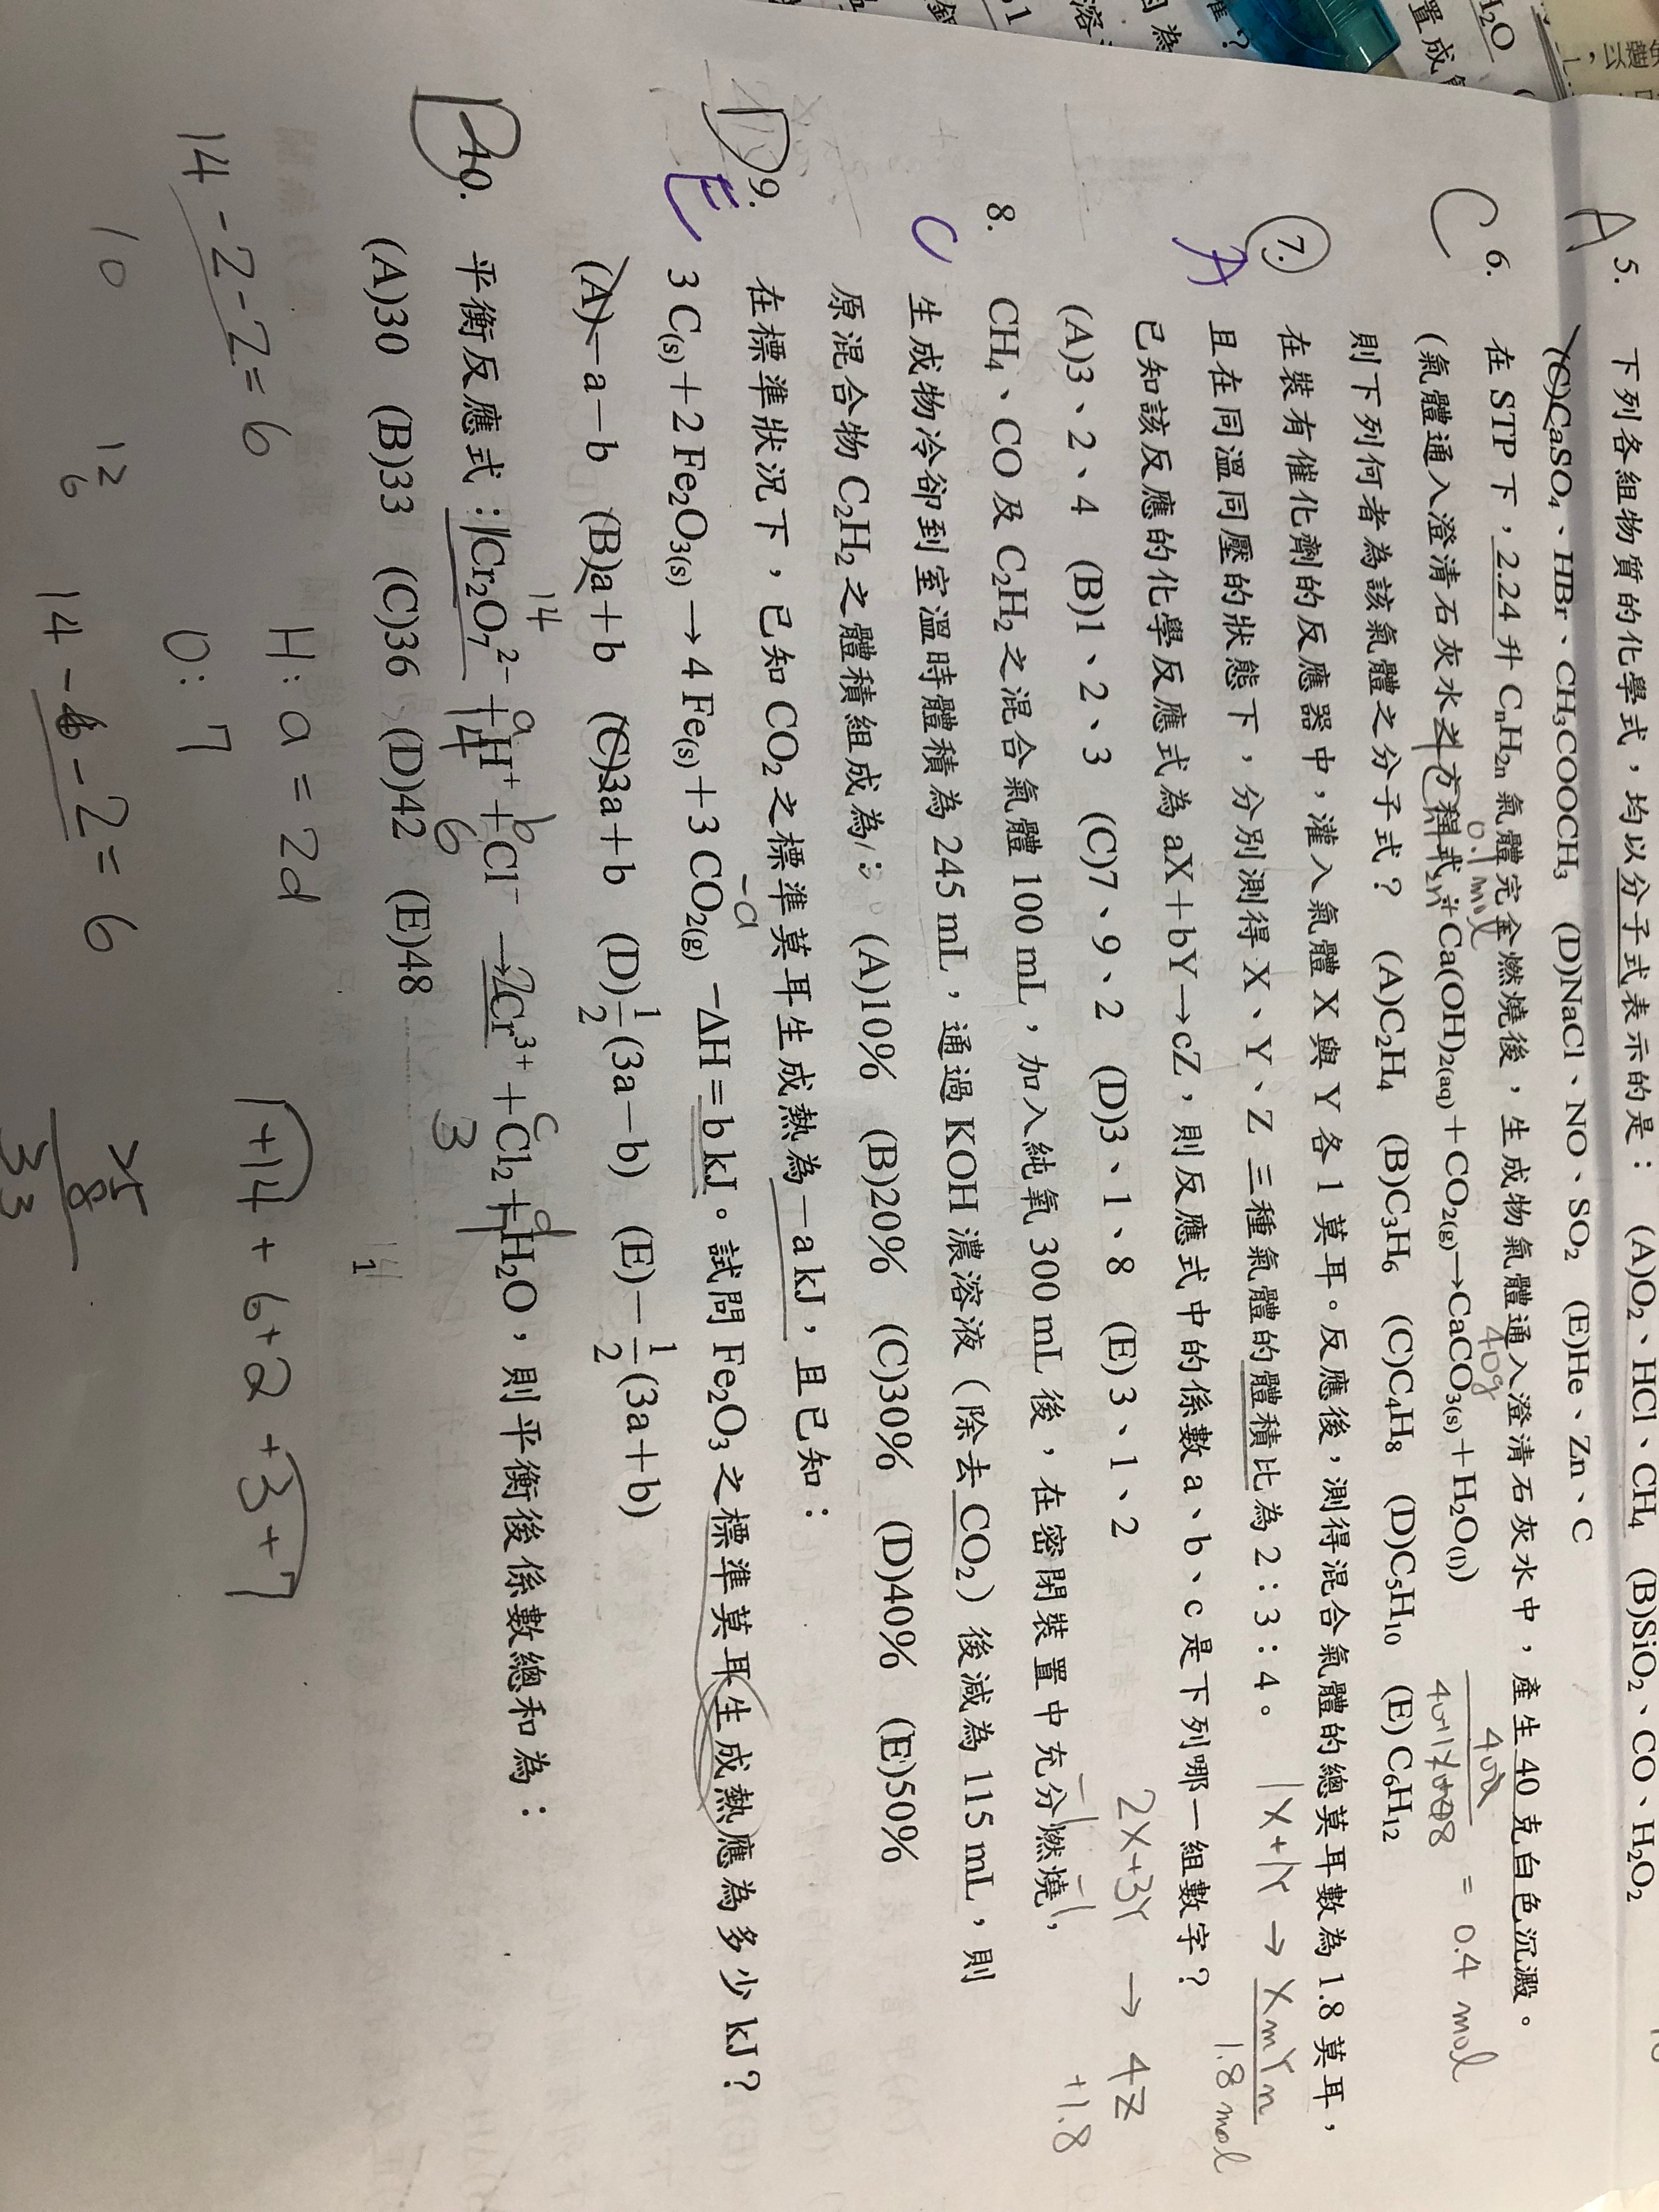 A 5. 下列各組物質的化學式，均以分子式表示的是： (A)O₂、HCl、CH₄ (B)SiO₂、CO、H₂O₂
(C)CaSO₄、HBr、CH₃COOCH₃ (D)NaCl、NO、SO₂ (E)He、Zn、C
C 6. 在 STP 下，2.24 升 CₙH₂ₙ 氣體完全燃燒後，生成物氣體通入澄清石灰水中，產生 40 克白色沉澱。
0.1 mol
40g
(氣體通入澄清石灰水之方程式：Ca(OH)₂(aq)＋CO₂(g)→CaCO₃(s)＋H₂O(l))
= 0.4 mol
則下列何者為該氣體之分子式？ (A)C₂H₄ (B)C₃H₆ (C)C₄H₈ (D)C₅H₁₀ (E) C₆H₁₂
7. 在裝有催化劑的反應器中，灌入氣體 X 與 Y 各 1 莫耳。反應後，測得混合氣體的總莫耳數為 1.8 莫耳，
A 且在同溫同壓的狀態下，分別測得 X、Y、Z 三種氣體的體積比為 2：3：4。
1X+1Y → XmYn
1.8 mol
已知該反應的化學反應式為 aX＋bY→cZ，則反應式中的係數 a、b、c 是下列哪一組數字？
(A)3、2、4 (B)1、2、3 (C)7、9、2 (D)3、1、8 (E)3、1、2
2X+3Y → 4Z
-1 -1 +1.8
8. CH₄、CO 及 C₂H₂ 之混合氣體 100 mL，加入純氧 300 mL 後，在密閉裝置中充分燃燒，
C 生成物冷卻到室溫時體積為 245 mL，通過 KOH 濃溶液（除去 CO₂）後減為 115 mL，則
原混合物 C₂H₂ 之體積組成為： (A)10% (B)20% (C)30% (D)40% (E)50%
D 9. 在標準狀況下，已知 CO₂ 之標準莫耳生成熱為－a kJ，且已知：
-a
E 3 C(s)＋2 Fe₂O₃(s)→4 Fe(s)＋3 CO₂(g) －ΔH＝b kJ。試問 Fe₂O₃ 之標準莫耳生成熱應為多少 kJ？
(A)－a－b (B)a＋b (C)3a＋b (D)1/2(3a－b) (E)－1/2(3a＋b)
D 10. 平衡反應式：1Cr₂O₇²⁻＋14H⁺＋6Cl⁻ →2Cr³⁺＋3Cl₂＋7H₂O，則平衡後係數總和為：
14 a b c d
(A)30 (B)33 (C)36 (D)42 (E)48
14-2-2=6
H: a=2d
1+14+6+2+3+7
O: 7
10
12
6
14-6-2=6
33